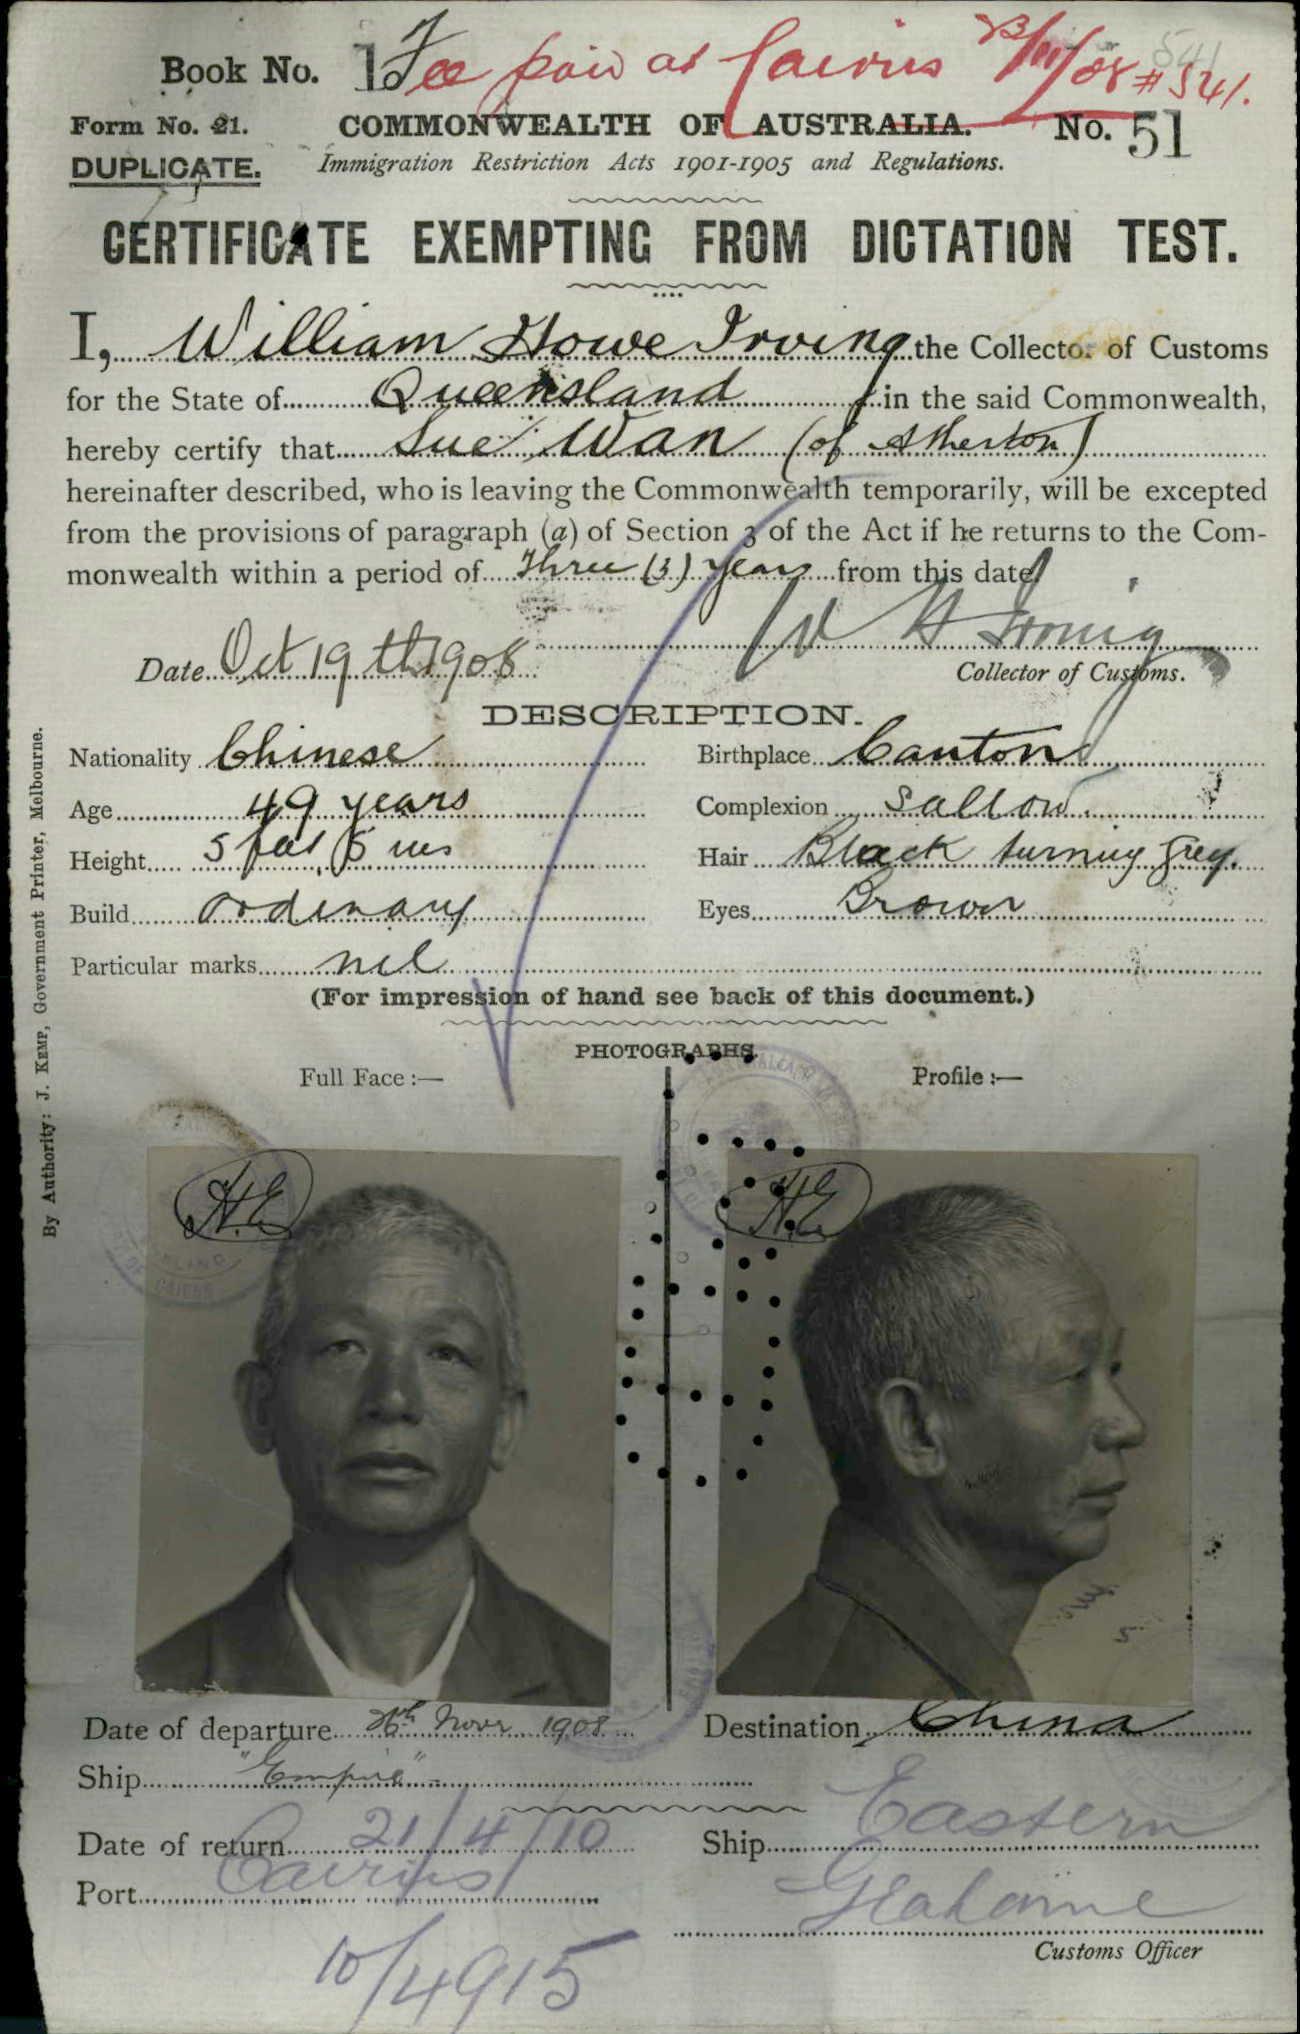 Book No. 1 Fee paid at Cairns 23/11/08 # 541.
541
Form No. 21. COMMONWEALTH OF AUSTRALIA. No. 51
DUPLICATE. Immigration Restriction Acts 1901-1905 and Regulations.
CERTIFICATE EXEMPTING FROM DICTATION TEST.
I, William Howe Irving the Collector of Customs
for the State of Queensland in the said Commonwealth,
hereby certify that Sue Wan (of Atherton)
hereinafter described, who is leaving the Commonwealth temporarily, will be excepted
from the provisions of paragraph (a) of Section 3 of the Act if he returns to the Com-
monwealth within a period of Three (3) years from this date
W H Irving
Date Oct 19th 1908
Collector of Customs.
DESCRIPTION.
Nationality Chinese Birthplace Canton
Age 49 years Complexion Sallow
Height 5 feet 5 ins Hair Black turning grey.
Build ordinary Eyes Brown
Particular marks nil
(For impression of hand see back of this document.)
PHOTOGRAPHS.
Full Face :— Profile :—
H.E H.E
CAIRNS
Date of departure Novr 1908 Destination China
Ship "Empire"
Date of return 21/4/10 Ship Eastern
Port Cairns
Customs Officer
10/4915
By Authority: J. KEMP, Government Printer, Melbourne.